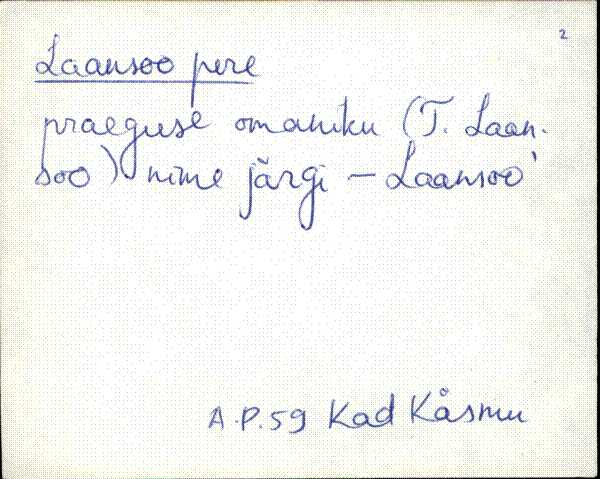 2
Laansoo pere
praeguse omaniku (T. Laan-
soo) nime järgi – Laansoo'
A.P.59 Kad Kåsmu